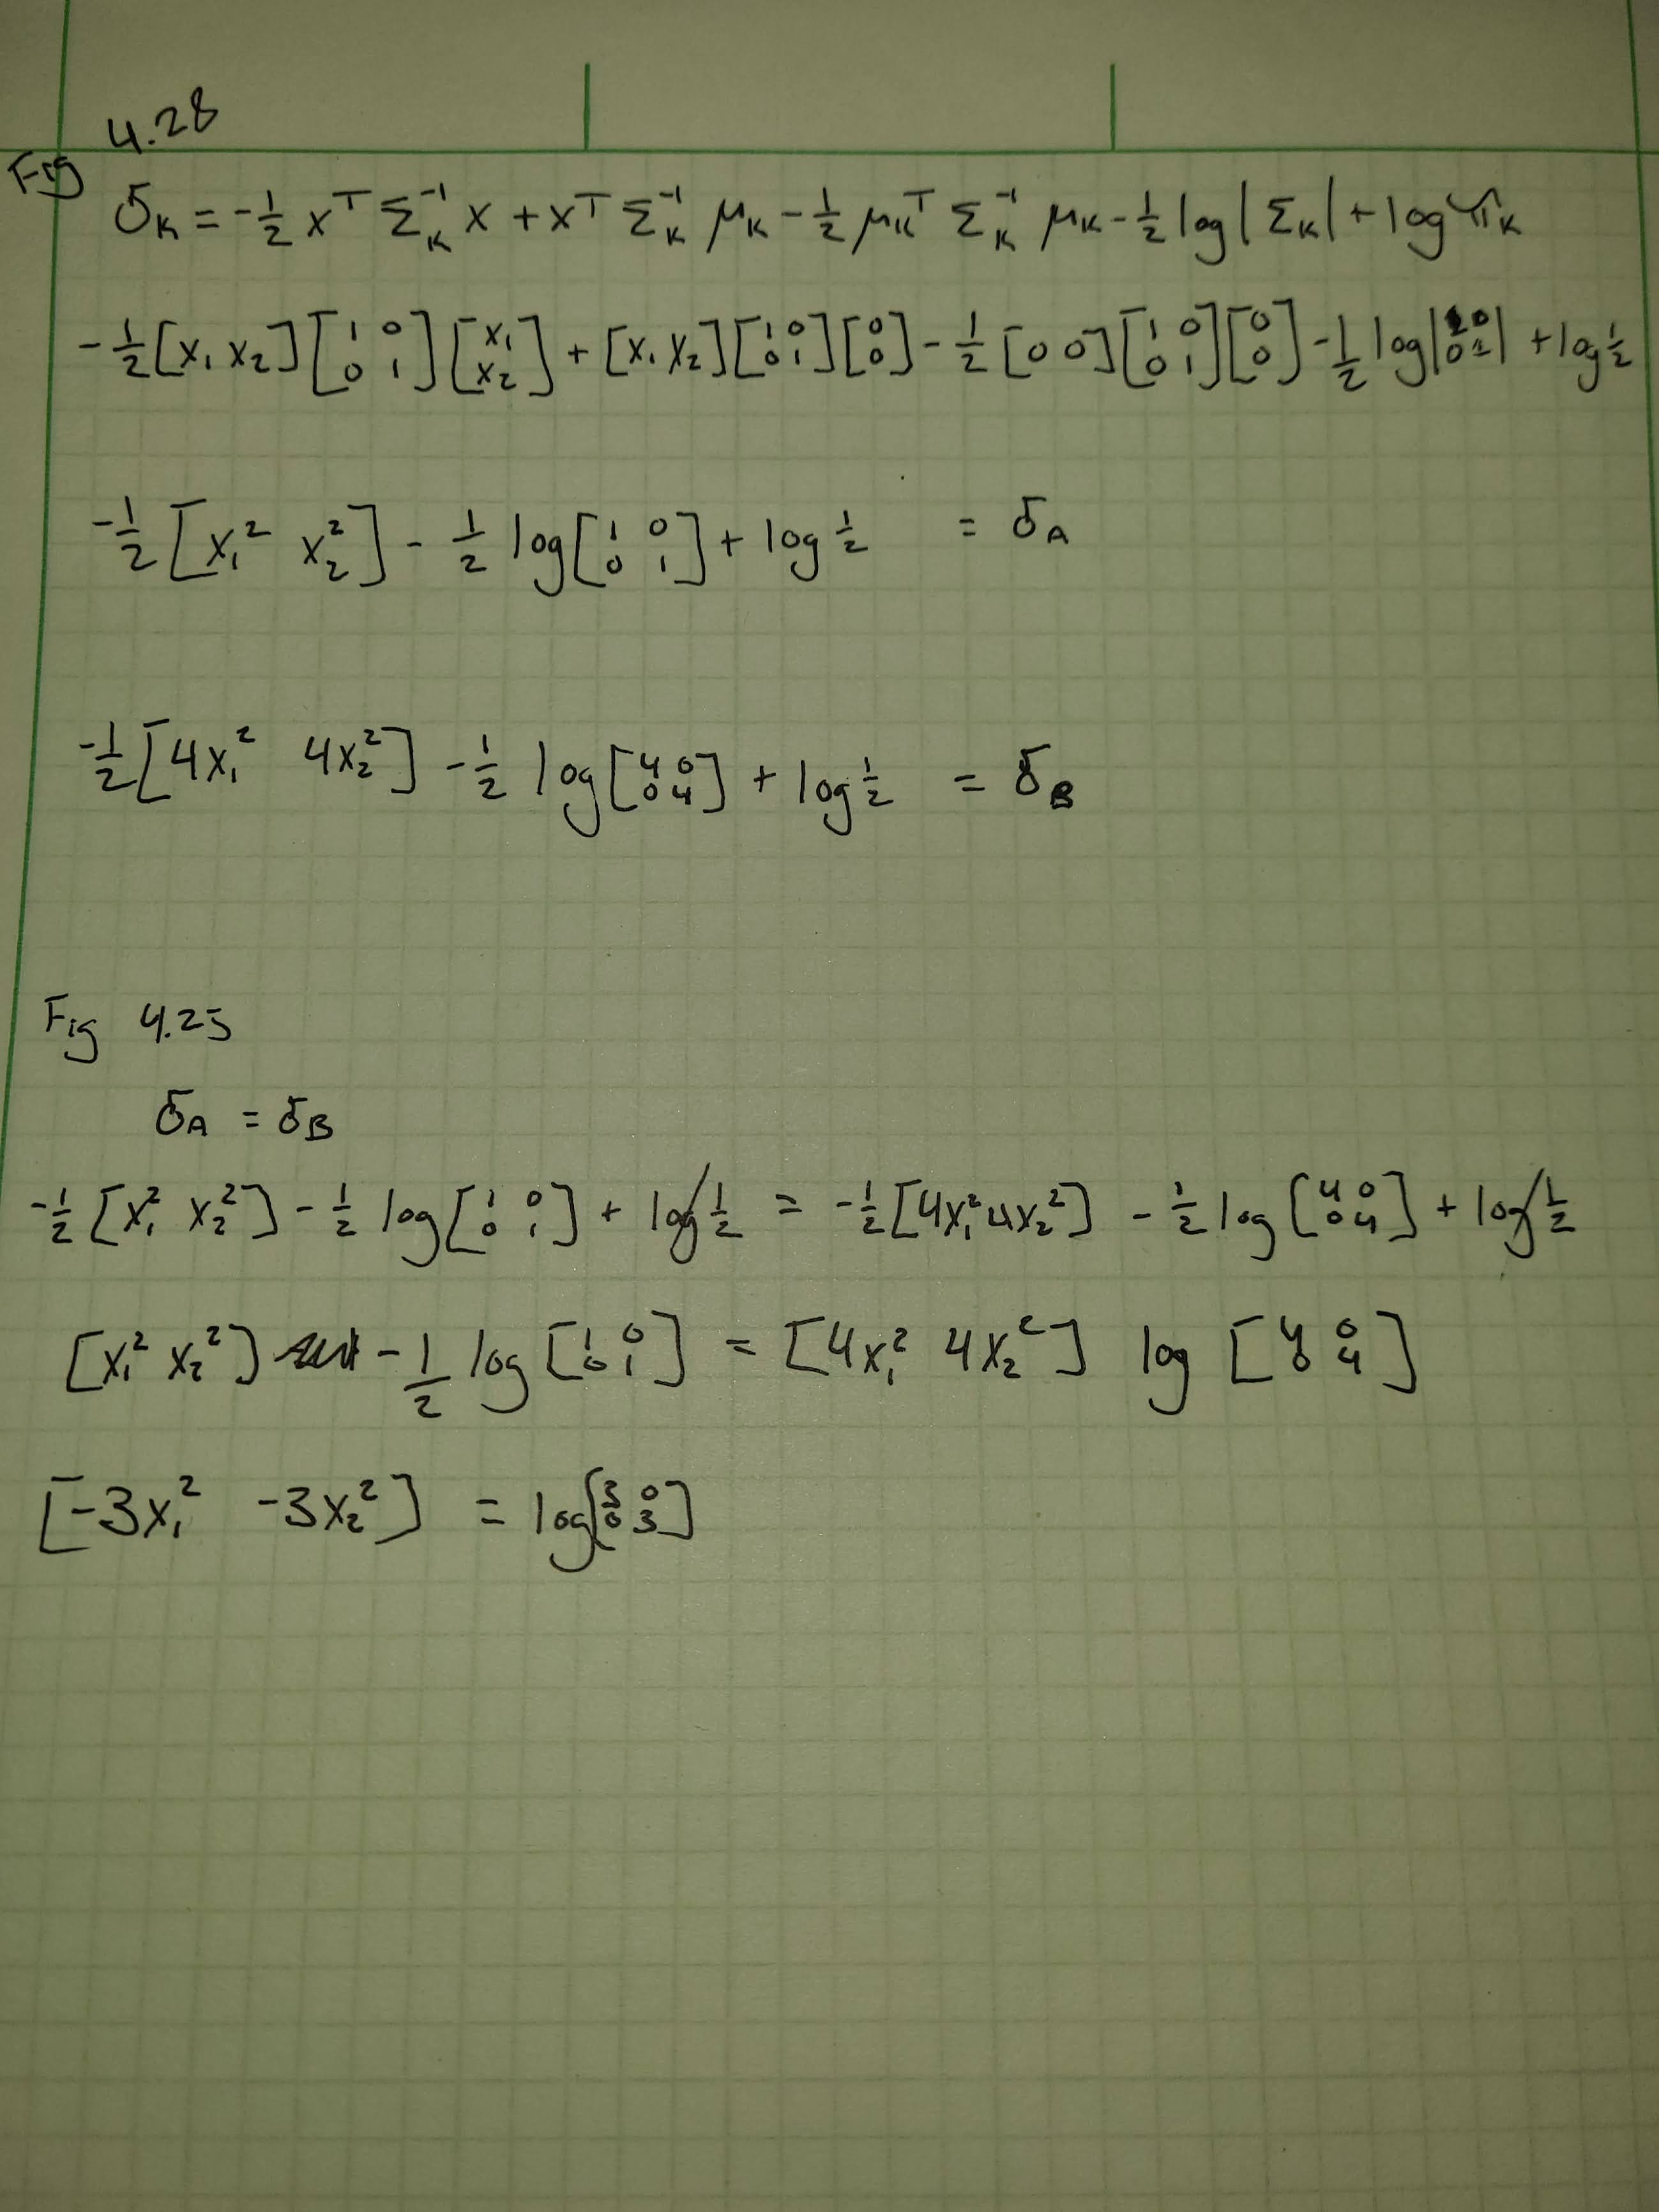 4.28
Fig
δ_K = -1/2 x^T Σ_K^-1 x + x^T Σ_K^-1 μ_K - 1/2 μ_K^T Σ_K^-1 μ_K - 1/2 log|Σ_K| + log π_K
-1/2 [x₁ x₂] [1 0; 0 1] [x₁; x₂] + [x₁ x₂] [1 0; 0 1] [0; 0] - 1/2 [0 0] [1 0; 0 1] [0; 0] - 1/2 log|1 0; 0 1| + log 1/2
-1/2 [x₁² x₂²] - 1/2 log [1 0; 0 1] + log 1/2 = δ_A
-1/2 [4x₁² 4x₂²] - 1/2 log [4 0; 0 4] + log 1/2 = δ_B
Fig 4.25
δ_A = δ_B
-1/2 [x₁² x₂²] - 1/2 log [1 0; 0 1] + log 1/2 = -1/2 [4x₁² 4x₂²] - 1/2 log [4 0; 0 4] + log 1/2
[x₁² x₂²] - 1/2 log [1 0; 0 1] = [4x₁² 4x₂²] log [4 0; 0 4]
[-3x₁² -3x₂²] = log [3 0; 0 3]